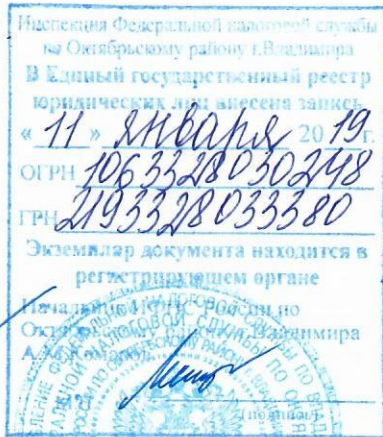 Инспекция Федеральной налоговой службы
по Октябрьскому району г.Владимира
В Единый государственный реестр
юридических лиц внесена запись
« 11 » января 2019г.
ОГРН 1063328030248
ГРН 2193328033380
Экземпляр документа находится в
регистрирующем органе
Начальник
Владимира
(подпись)